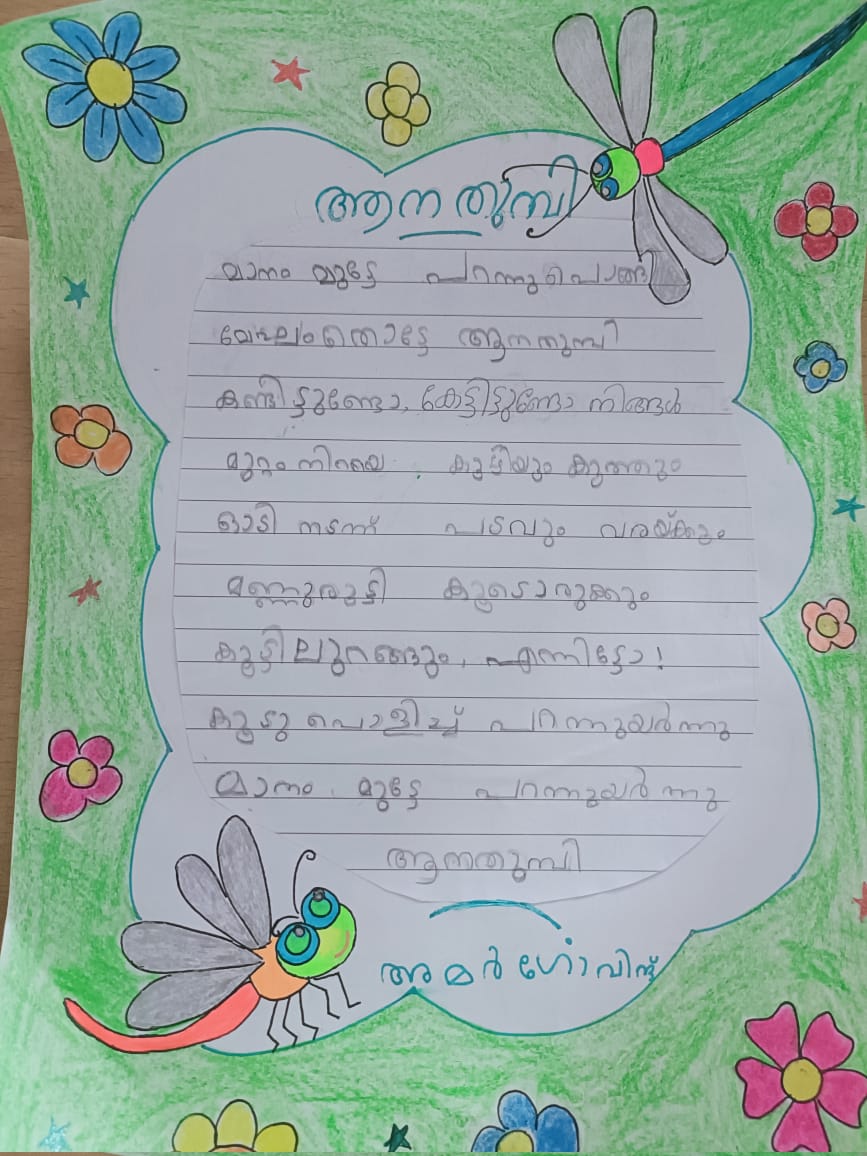 ആന തുമ്പി
മാനം മുട്ടേ പറന്നുപൊങ്ങി
മേഘംതൊട്ടേ ആനതുമ്പി
കണ്ടിട്ടുണ്ടോ, കേട്ടിട്ടുണ്ടോ നിങ്ങൾ
മുറ്റം നിറയെ കുഴിയും കുത്തും
ഓടി നടന്ന് പടവും വരയ്ക്കും
മണ്ണുരുട്ടി കൂടൊരുക്കും
കൂട്ടിലുറങ്ങും, എന്നിട്ടോ!
കൂടു പൊളിച്ച് പറന്നുയർന്നു
മാനം മുട്ടേ പറന്നുയർന്നു
ആനതുമ്പി
അമർ ഗോവിന്ദ്